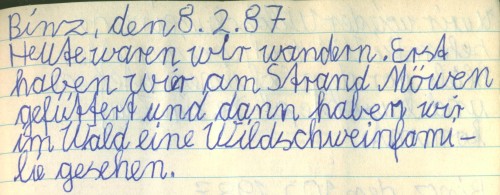 Binz, den 8.2.87
Heute waren wir wandern. Erst
haben wir am Strand Möwen
gefüttert und dann haben wir
im Wald eine Wildschweinfami-
lie gesehen.